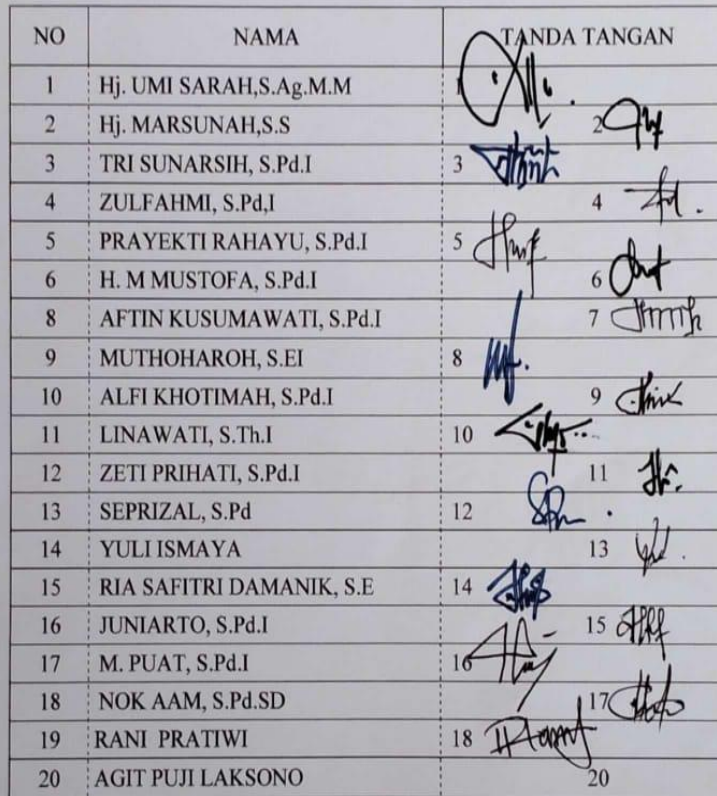 NO NAMA TANDA TANGAN
1 Hj. UMI SARAH,S.Ag.M.M 1
2 Hj. MARSUNAH,S.S 2
3 TRI SUNARSIH, S.Pd.I 3
4 ZULFAHMI, S.Pd,I 4
5 PRAYEKTI RAHAYU, S.Pd.I 5
6 H. M MUSTOFA, S.Pd.I 6
8 AFTIN KUSUMAWATI, S.Pd.I 7
9 MUTHOHAROH, S.EI 8
10 ALFI KHOTIMAH, S.Pd.I 9
11 LINAWATI, S.Th.I 10
12 ZETI PRIHATI, S.Pd.I 11
13 SEPRIZAL, S.Pd 12
14 YULI ISMAYA 13
15 RIA SAFITRI DAMANIK, S.E 14
16 JUNIARTO, S.Pd.I 15
17 M. PUAT, S.Pd.I 16
18 NOK AAM, S.Pd.SD 17
19 RANI PRATIWI 18
20 AGIT PUJI LAKSONO 20